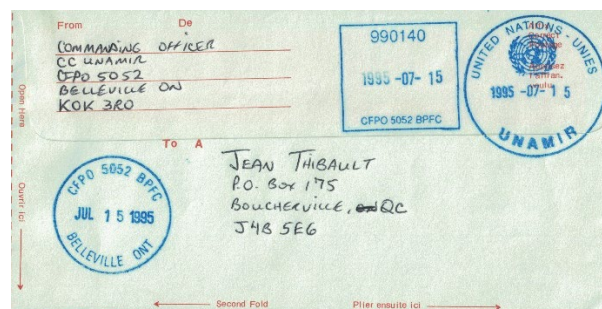 From De
COMMANDING OFFICER
CC UNAMIR
CFPO 5052
BELLEVILLE ON
K0K 3R0
990140
1995 -07- 15
CFPO 5052 BPFC
UNITED NATIONS - UNIES
1995 -07- 15
UNAMIR
Open Here
Ouvrir ici
To A
JEAN THIBAULT
P.O. Box 175
BOUCHERVILLE, ON QC
J4B 5E6
CFPO 5052 BPFC
JUL 15 1995
BELLEVILLE ONT
Second Fold Plier ensuite ici